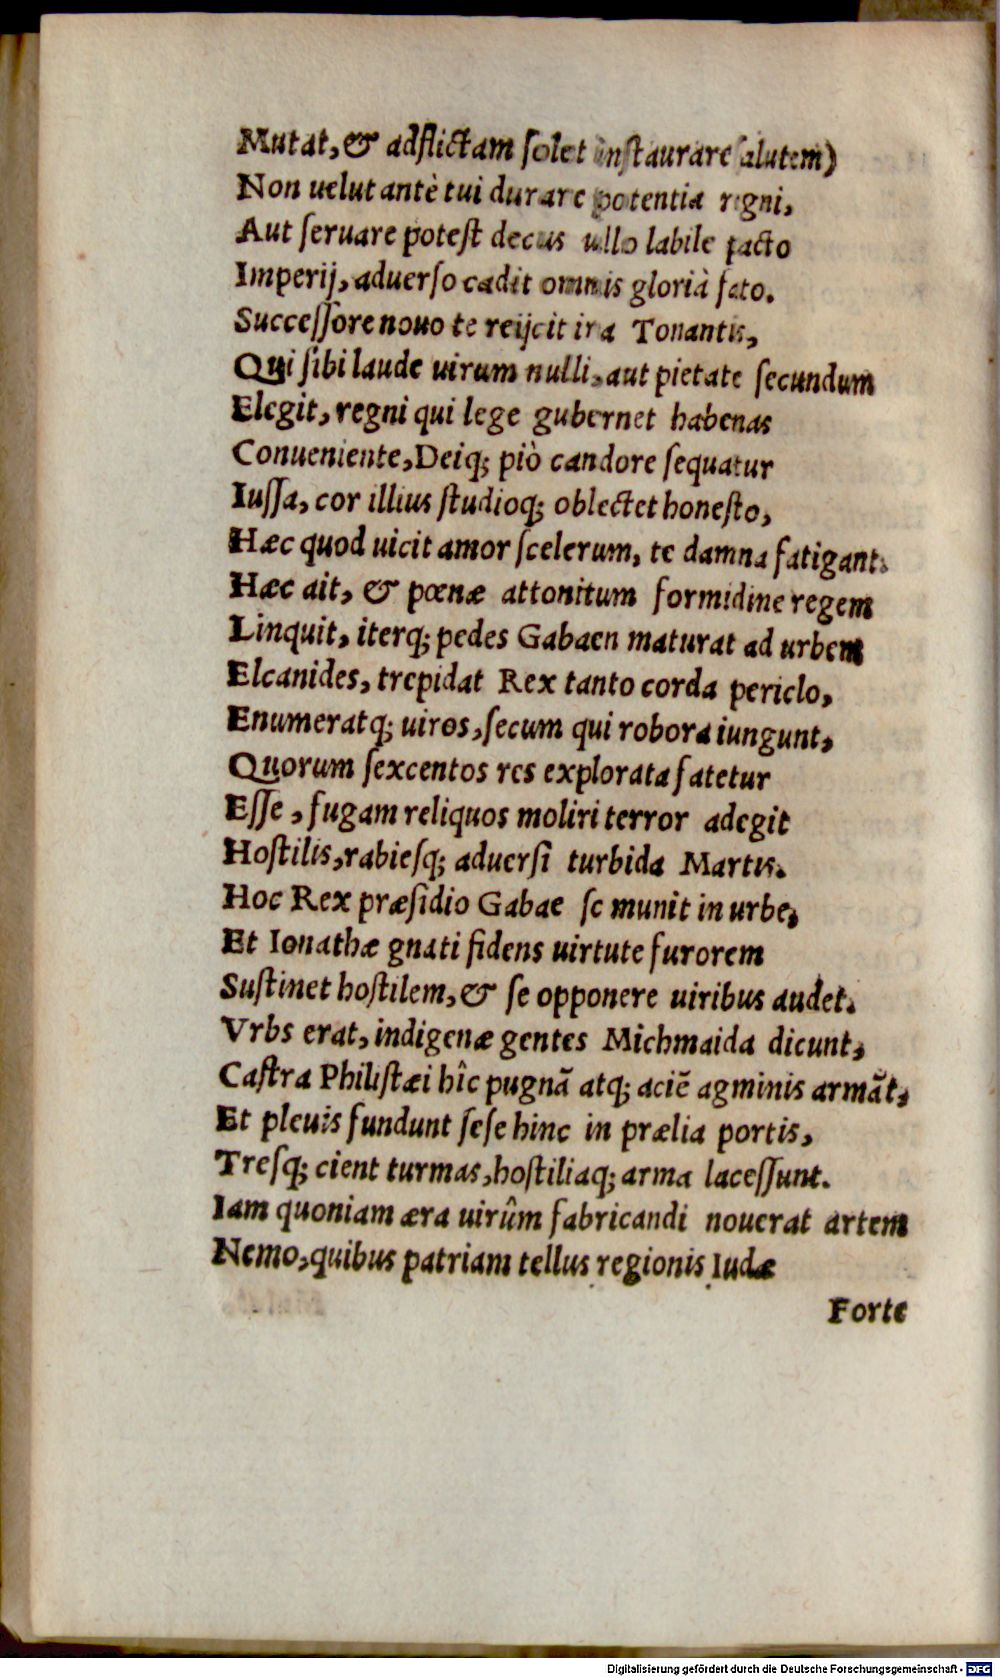 Mutat, & adflictam ſolet inſtaurare ſalutem)
Non uelut antè tui durare potentia regni,
Aut ſeruare poteſt decus ullo labile pacto
Imperij, aduerſo cadit omnis glorià fato.
Succeſſore nouo te reijcit ira Tonantis,
Qui ſibi laude uirum nulli, aut pietate ſecundum
Elegit, regni qui lege gubernet habenas
Conueniente, Deiq; piò candore ſequatur
Iuſſa, cor illius ſtudioq; oblectet honeſto,
Hæc quod uicit amor ſcelerum, te damna fatigant.
Hæc ait, & pœnæ attonitum formidine regem
Linquit, iterq; pedes Gabaen maturat ad urbem
Elcanides, trepidat Rex tanto corda periclo,
Enumeratq; uiros, ſecum qui robora iungunt,
Quorum ſexcentos res explorata fatetur
Eſſe, fugam reliquos moliri terror adegit
Hoſtilis, rabieſq; aduerſi turbida Martis.
Hoc Rex præſidio Gabae ſe munit in urbe,
Et Ionathæ gnati fidens uirtute furorem
Suſtinet hoſtilem, & ſe opponere uiribus audet.
Vrbs erat, indigenæ gentes Michmaida dicunt,
Caſtra Philiſtæi hîc pugnã atq; aciẽ agminis armãt,
Et pleuis fundunt ſeſe hinc in prælia portis,
Treſq; cient turmas, hoſtiliaq; arma laceſſunt.
Iam quoniam æra uirûm fabricandi nouerat artem
Nemo, quibus patriam tellus regionis Iudæ
Forte
Digitalisierung gefördert durch die Deutsche Forschungsgemeinschaft - DFG